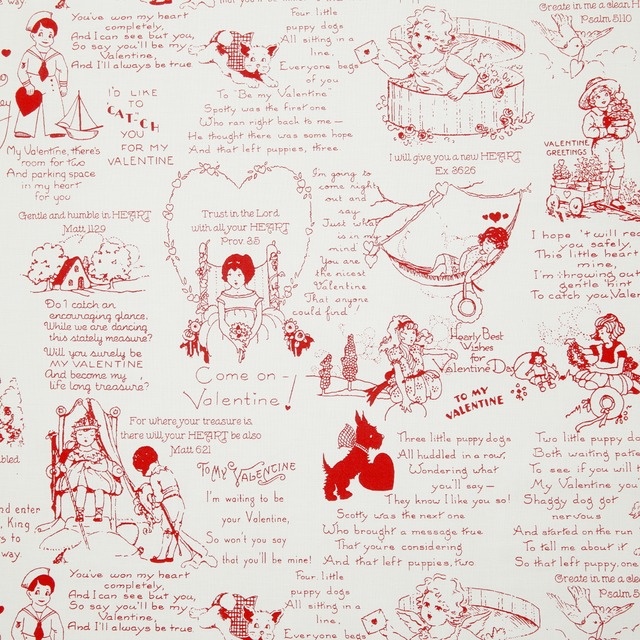 You've won my heart
completely,
And I can see but you,
So say you'll be my
Valentine,
And I'll always be true
I'D LIKE
TO
CAT-CH
YOU
FOR MY
VALENTINE
My Valentine, there's
room for two
And parking space
in my heart
for you
Four little
puppy dogs
All sitting in a
line,
Everyone begs
of you
To "Be my Valentine"
Spotty was the first one
Who ran right back to me—
He thought there was some hope
And that left puppies, three.
I will give you a new HEART
Ex 3626
Create in me a clean H
Psalm 51:10
VALENTINE
GREETINGS
Gentle and humble in HEART
Matt 11:29
Trust in the Lord
with all your HEART
Prov 3:5
I'm going to
come right
out and
say
Just what
is in my
mind
You are
the nicest
Valentine
That anyone
could find
I hope 'twill rea
you safely,
This little heart
mine,
I'm throwing out
gentle hint
To catch you, Valen
Do I catch an
encouraging glance,
While we are dancing
this stately measure?
Will you surely be
MY VALENTINE
And become my
life long treasure?
Come on—
Valentine!
Hearly Best
Wishes
for
Valentine Day
TO MY
VALENTINE
For where your treasure is,
there will your HEART be also
Matt 6:21
To My VALENTINE
I'm waiting to be
your Valentine,
So won't you say
that you'll be mine!
Three little puppy dogs
All huddled in a row,
Wondering what
you'll say—
They know I like you so!
Scotty was the next one
Who brought a message true
That you're considering
And that left puppies, two
Two little puppy do
Both waiting patie
To see if you will
My Valentine you
Shaggy dog got
nervous
And started on the run
To tell me about it
So that left puppy, one
bled
nd enter
, King
rs to
way.
You've won my heart
completely,
And I can see but you,
So say you'll be my
Valentine,
And I'll always be true
Four little
puppy dogs
All sitting in a
line,
Everyone begs
Create in me a clean H
Psalm 5